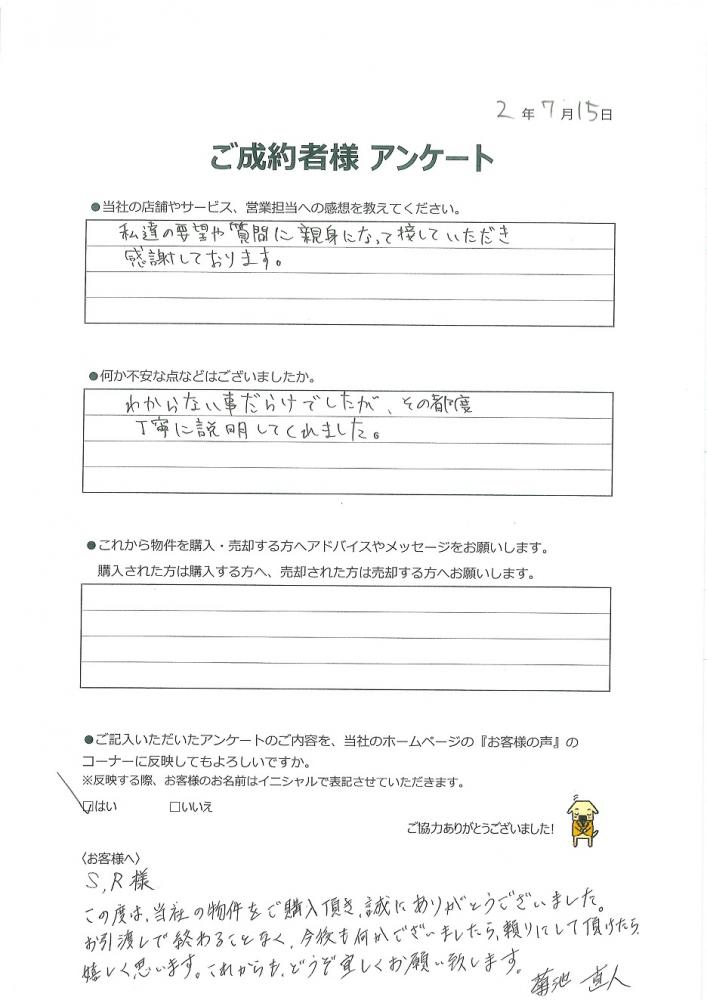 2年7月15日
ご成約者様 アンケート
●当社の店舗やサービス、営業担当への感想を教えてください。
私達の要望や質問に親身になって接していただき
感謝しております。
●何か不安な点などはございましたか。
わからない事だらけでしたが、その都度
丁寧に説明してくれました。
●これから物件を購入・売却する方へアドバイスやメッセージをお願いします。
購入された方は購入する方へ、売却された方は売却する方へお願いします。
●ご記入いただいたアンケートのご内容を、当社のホームページの『お客様の声』の
コーナーに反映してもよろしいですか。
※反映する際、お客様のお名前はイニシャルで表記させていただきます。
☑はい □いいえ
ご協力ありがとうございました!
〈お客様へ〉
S,R様
この度は、当社の物件をご購入頂き、誠にありがとうございました。
お引渡しで終わることなく、今後も何かございましたら、頼りにして頂けたら
嬉しく思います。これからも、どうぞ宜しくお願い致します。
菊池 直人